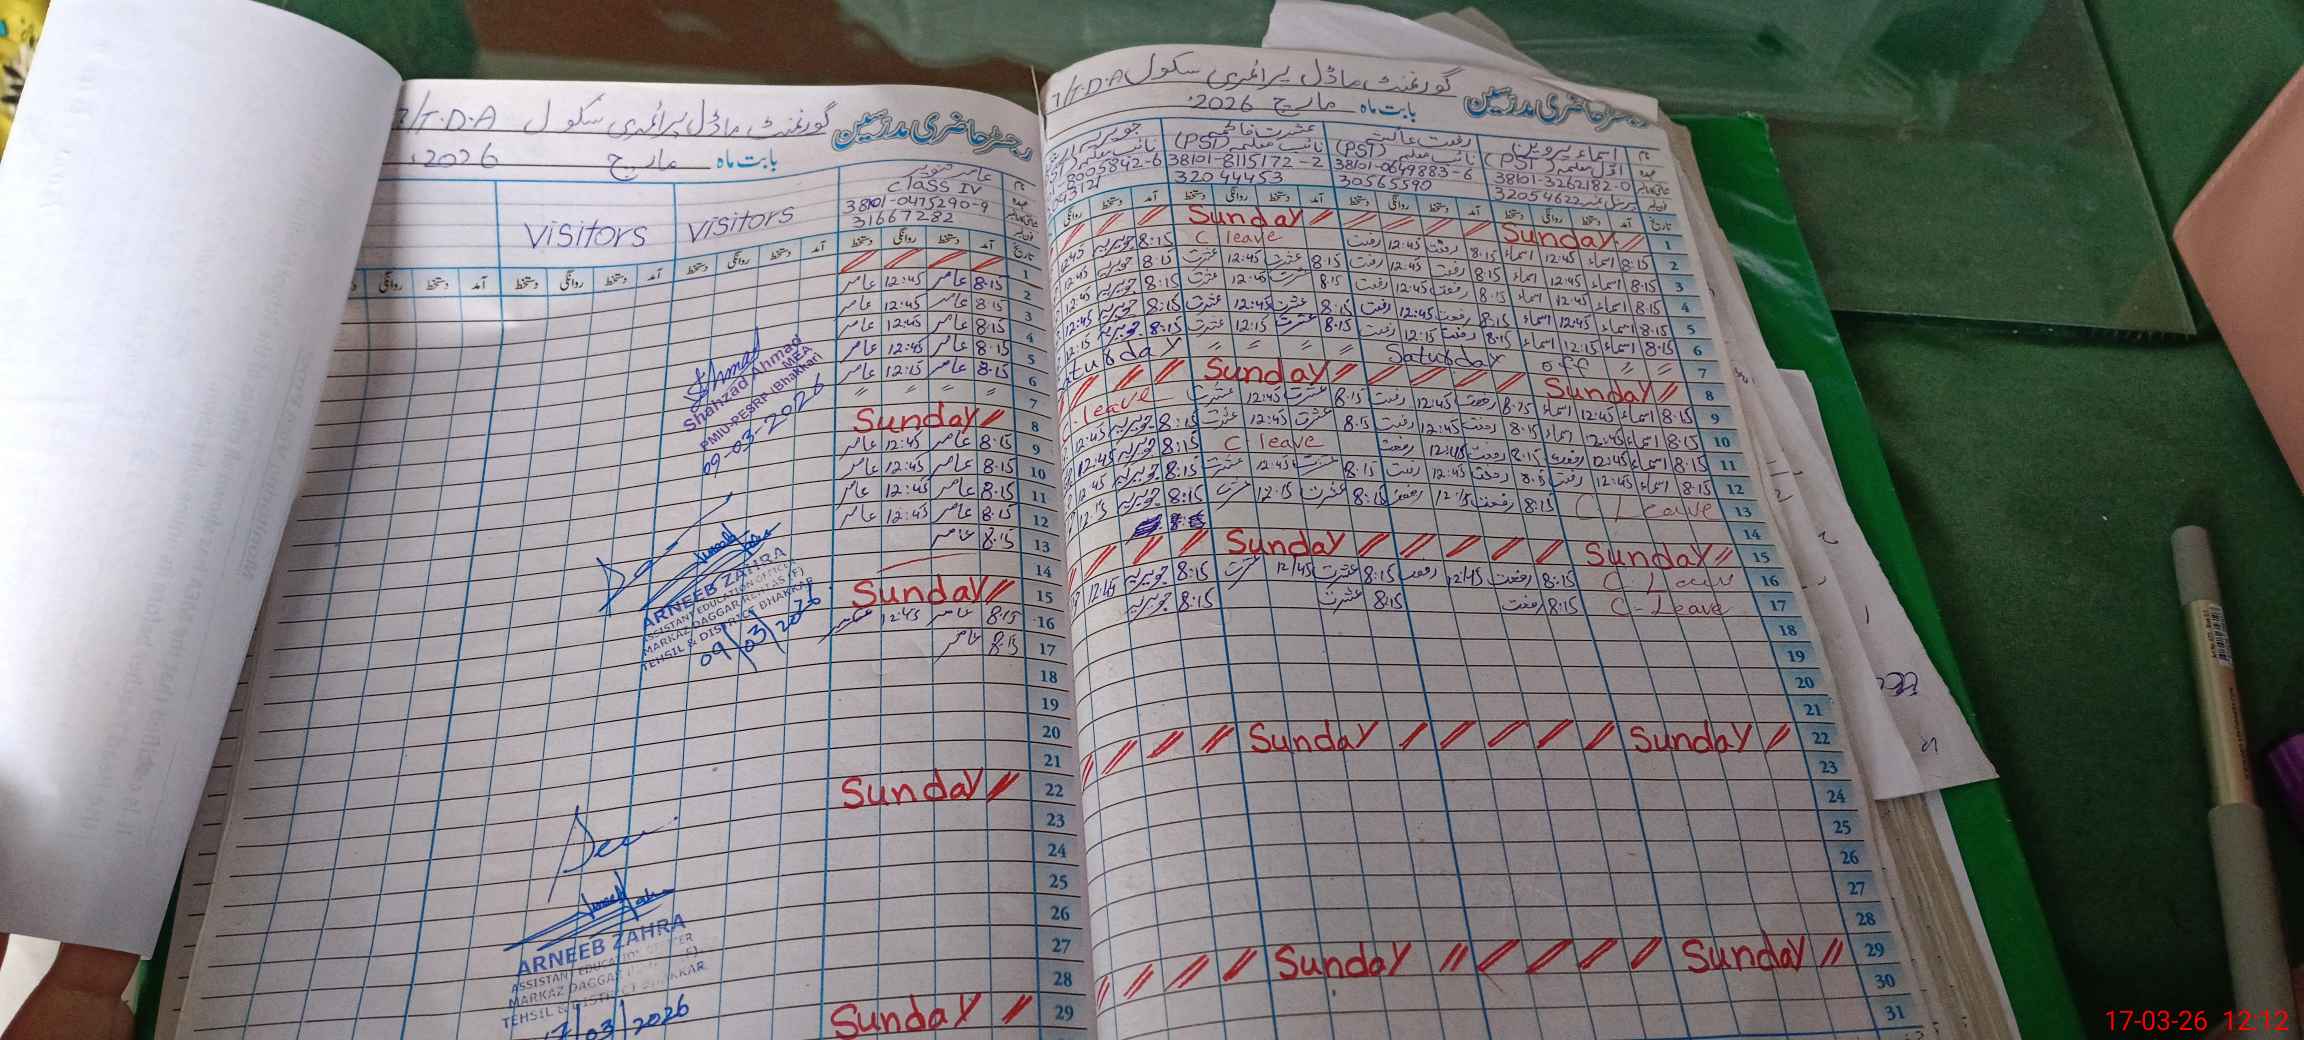 رجسٹر حاضری مدرسین گورنمنٹ ماڈل پرائمری سکول 7/T.D.A
بابت ماہ مارچ 2026ء
اسماء پروین
رفعت عائشہ
عشرت فاطمہ
(PST)
نائب معلمہ (PST)
نائب معلمہ (PST)
38101-3262182-0
38101-0649883-6
38101-8115172-2
8005842-6
32054622
30565590
32044453
تاریخ آمد دستخط روانگی دستخط آمد دستخط روانگی دستخط آمد دستخط روانگی دستخط آمد دستخط روانگی
1 Sunday Sunday
2 8:15 اسماء 12:45 اسماء 8:15 رفعت 12:45 رفعت C leave 8:15 جویریہ 12:45
3 8:15 اسماء 12:45 اسماء 8:15 رفعت 12:45 رفعت 8:15 عشرت 12:45 عشرت 8:15 جویریہ 12:45
4 8:15 اسماء 12:45 اسماء 8:15 رفعت 12:45 رفعت 8:15 عشرت 12:45 عشرت 8:15 جویریہ 12:45
5 8:15 اسماء 12:45 اسماء 8:15 رفعت 12:45 رفعت 8:15 عشرت 12:45 عشرت 8:15 جویریہ 12:45
6 8:15 اسماء 12:15 اسماء 8:15 رفعت 12:15 رفعت 8:15 عشرت 12:15 عشرت 8:15 جویریہ 12:15
7 Saturday off Saturday
8 Sunday Sunday
9 8:15 اسماء 12:45 اسماء 8:15 رفعت 12:45 رفعت 8:15 عشرت 12:45 عشرت C leave
10 8:15 اسماء 12:45 اسماء 8:15 رفعت 12:45 رفعت 8:15 عشرت 12:45 عشرت 8:15 جویریہ 12:45
11 8:15 اسماء 12:45 رفعت 8:15 رفعت 12:45 رفعت C leave 8:15 جویریہ 12:45
12 8:15 اسماء 12:45 رفعت 8:15 رفعت 12:45 رفعت 8:15 عشرت 12:45 عشرت 8:15 جویریہ 12:45
13 C Leave 8:15 رفعت 12:15 رفعت 8:15 عشرت 12:15 عشرت 8:15 جویریہ 12:15
14
15 Sunday Sunday
16 C Leave 8:15 رفعت 12:45 رفعت 8:15 عشرت 12:45 عشرت 8:15 جویریہ 12:45
17 C-Leave 8:15 رفعت 8:15 عشرت 8:15 جویریہ
18
19
20
21
22 Sunday Sunday
23
24
25
26
27
28
29 Sunday Sunday
30
31
رجسٹر حاضری مدرسین گورنمنٹ ماڈل پرائمری سکول 7/T.D.A
بابت ماہ مارچ 2026ء
عامر
Class IV
38101-0475290-9
31667282
visitors
visitors
تاریخ آمد دستخط روانگی دستخط آمد دستخط روانگی دستخط آمد دستخط روانگی دستخط آمد دستخط روانگی
1
2 8:15 عامر 12:45 عامر
3 8:15 عامر 12:45 عامر
4 8:15 عامر 12:45 عامر
5 8:15 عامر 12:45 عامر
6 8:15 عامر 12:15 عامر
7
8 Sunday
9 8:15 عامر 12:45 عامر
10 8:15 عامر 12:45 عامر
11 8:15 عامر 12:45 عامر
12 8:15 عامر 12:45 عامر
13 8:15 عامر
14
15 Sunday
16 8:15 عامر 12:45 عامر
17 8:15 عامر
18
19
20
21
22 Sunday
23
24
25
26
27
28
29 Sunday
Shahzad Ahmad
MEA
PMIU-PESRP (Bhakkar)
09-03-2026
ARNEEB ZAHRA
ASSISTANT EDUCATION OFFICER
MARKAZ DAGGAR REHTAS (F)
TEHSIL & DISTRICT BHAKKAR
09/03/2026
ARNEEB ZAHRA
ASSISTANT EDUCATION OFFICER
MARKAZ DAGGAR (F)
TEHSIL & DISTRICT BHAKKAR
17/03/2026
17-03-26 12:12